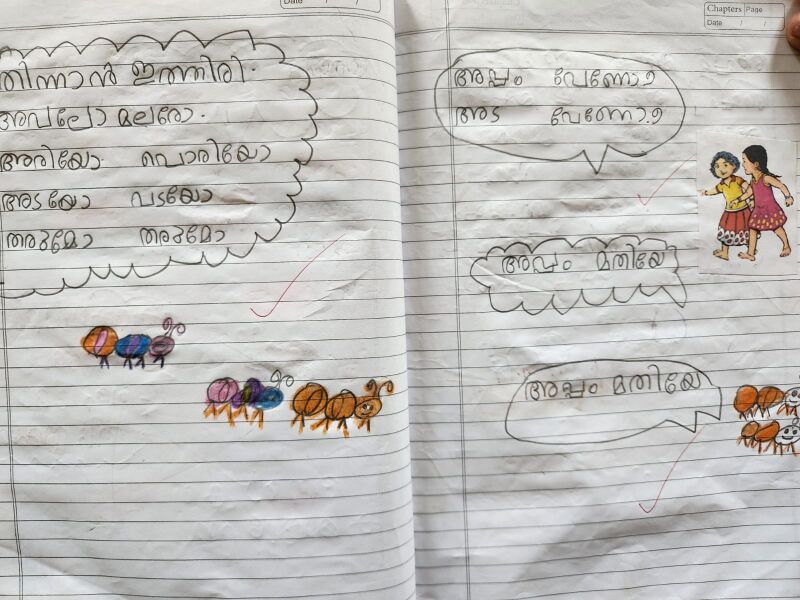 Date
തിന്നാൻ ഇത്തിരി.
അവലോ മലരോ.
അരിയോ പൊരിയോ
അടയോ വടയോ
തരുമോ തരുമോ
Chapters Page
Date / /
അപ്പം വേണോ?
അട വേണോ.?
അപ്പം മതിയേ
അപ്പം മതിയേ